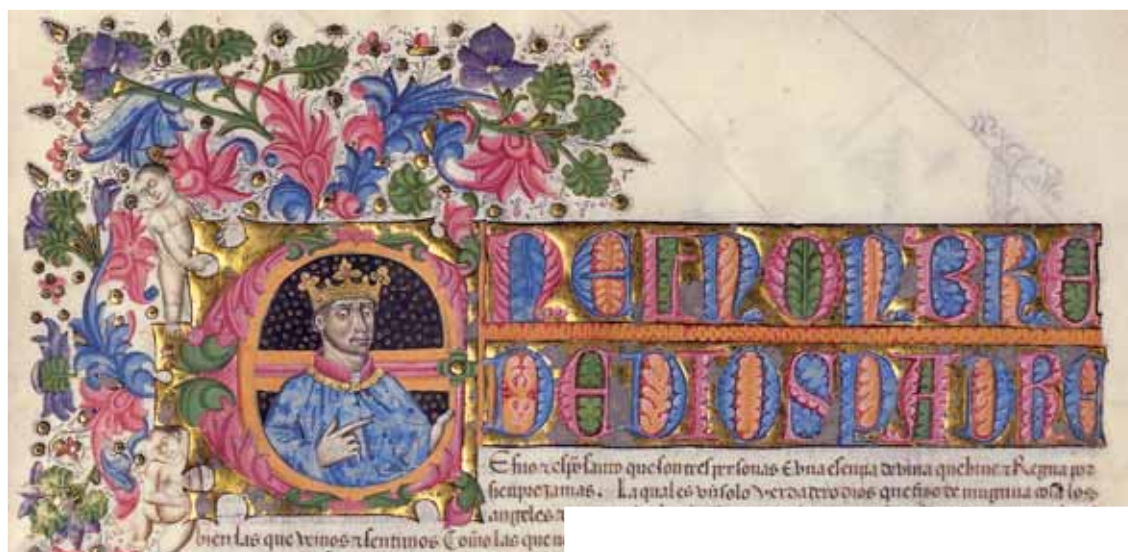 EN EL NONBRE
DE DIOS PADRE
E fijo & espu santo que son tres personas E vna esençia deuina que biue & Regna por
sienpre jamas. La qual es vn solo verdadero dios que fiso de ninguna cosa los
angeles &
bien las que vemos & sentimos Como las que n